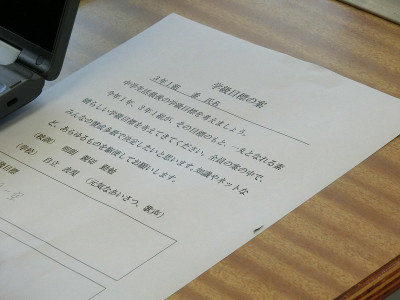 学級目標の案
3年1組　番 氏名
中学生活最後の学級目標を考えましょう。
今年1年、3年1組が、その目標のもと、一丸となれる素
晴らしい学級目標を考えてきてください。全員の案の中で、
みんなの賛成多数で決定したいと思います。知識やネットな
ど、あらゆるものを駆使してお願いします。
（校訓）　明朗　親切　勤勉
（学校）　自立　表現　（元気なあいさつ、歌声）
目標